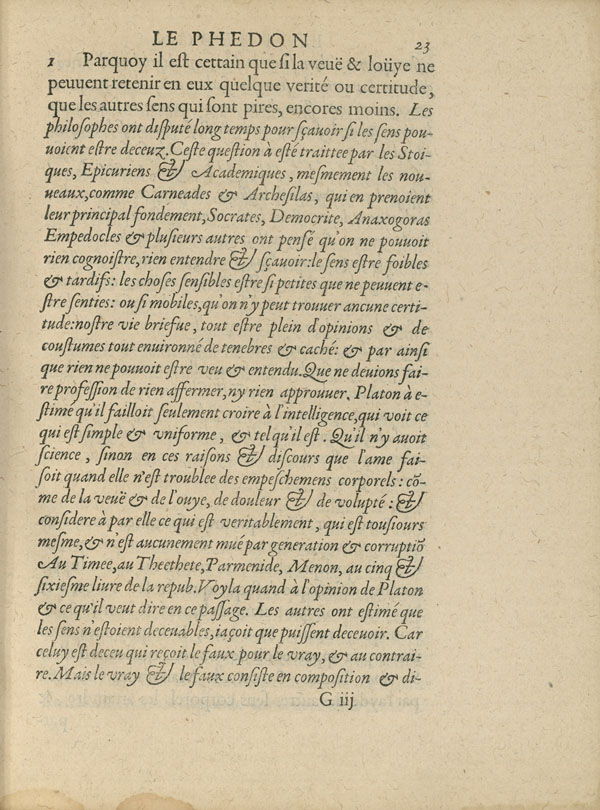 LE PHEDON 23
1 Parquoy il est certain que si la veuë & loüye ne
peuuent retenir en eux quelque verité ou certitude,
que les autres sens qui sont pires, encores moins. Les
philosophes ont disputé long temps pour sçauoir si les sens pou-
uoient estre deceuz. Ceste question à esté traittee par les Stoi-
ques, Epicuriens & Academiques, mesmement les nou-
ueaux, comme Carneades & Archesilas, qui en prenoient
leur principal fondement, Socrates, Democrite, Anaxogoras
Empedocles & plusieurs autres ont pensé qu'on ne pouuoit
rien cognoistre, rien entendre & sçauoir: le sens estre foibles
& tardifs: les choses sensibles estre si petites que ne peuuent e-
stre senties: ou si mobiles, qu'on n'y peut trouuer ancune certi-
tude: nostre vie briefue, tout estre plein d'opinions & de
coustumes tout enuironné de tenebres & caché: & par ainsi
que rien ne pouuoit estre veu & entendu. Que ne deuions fai-
re profession de rien affermer, ny rien approuuer. Platon à e-
stimé qu'il failloit seulement croire à l'intelligence, qui voit ce
qui est simple & vniforme, & tel qu'il est. Qu'il n'y auoit
science, sinon en ces raisons & discours que l'ame fai-
soit quand elle n'est troublee des empeschemens corporels: cõ-
me de la veuë & de l'ouye, de douleur & de volupté: &
considere à par elle ce qui est veritablement, qui est tousiours
mesme, & n'est aucunement mué par generation & corruptiõ
Au Timee, au Theethete, Parmenide, Menon, au cinq &
sixiesme liure de la repub. Voyla quand à l'opinion de Platon
& ce qu'il veut dire en ce passage. Les autres ont estimé que
les sens n'estoient deceuables, iaçoit que puissent deceuoir. Car
celuy est deceu qui reçoit le faux pour le vray, & au contrai-
re. Mais le vray & le faux consiste en composition & di-
G iij